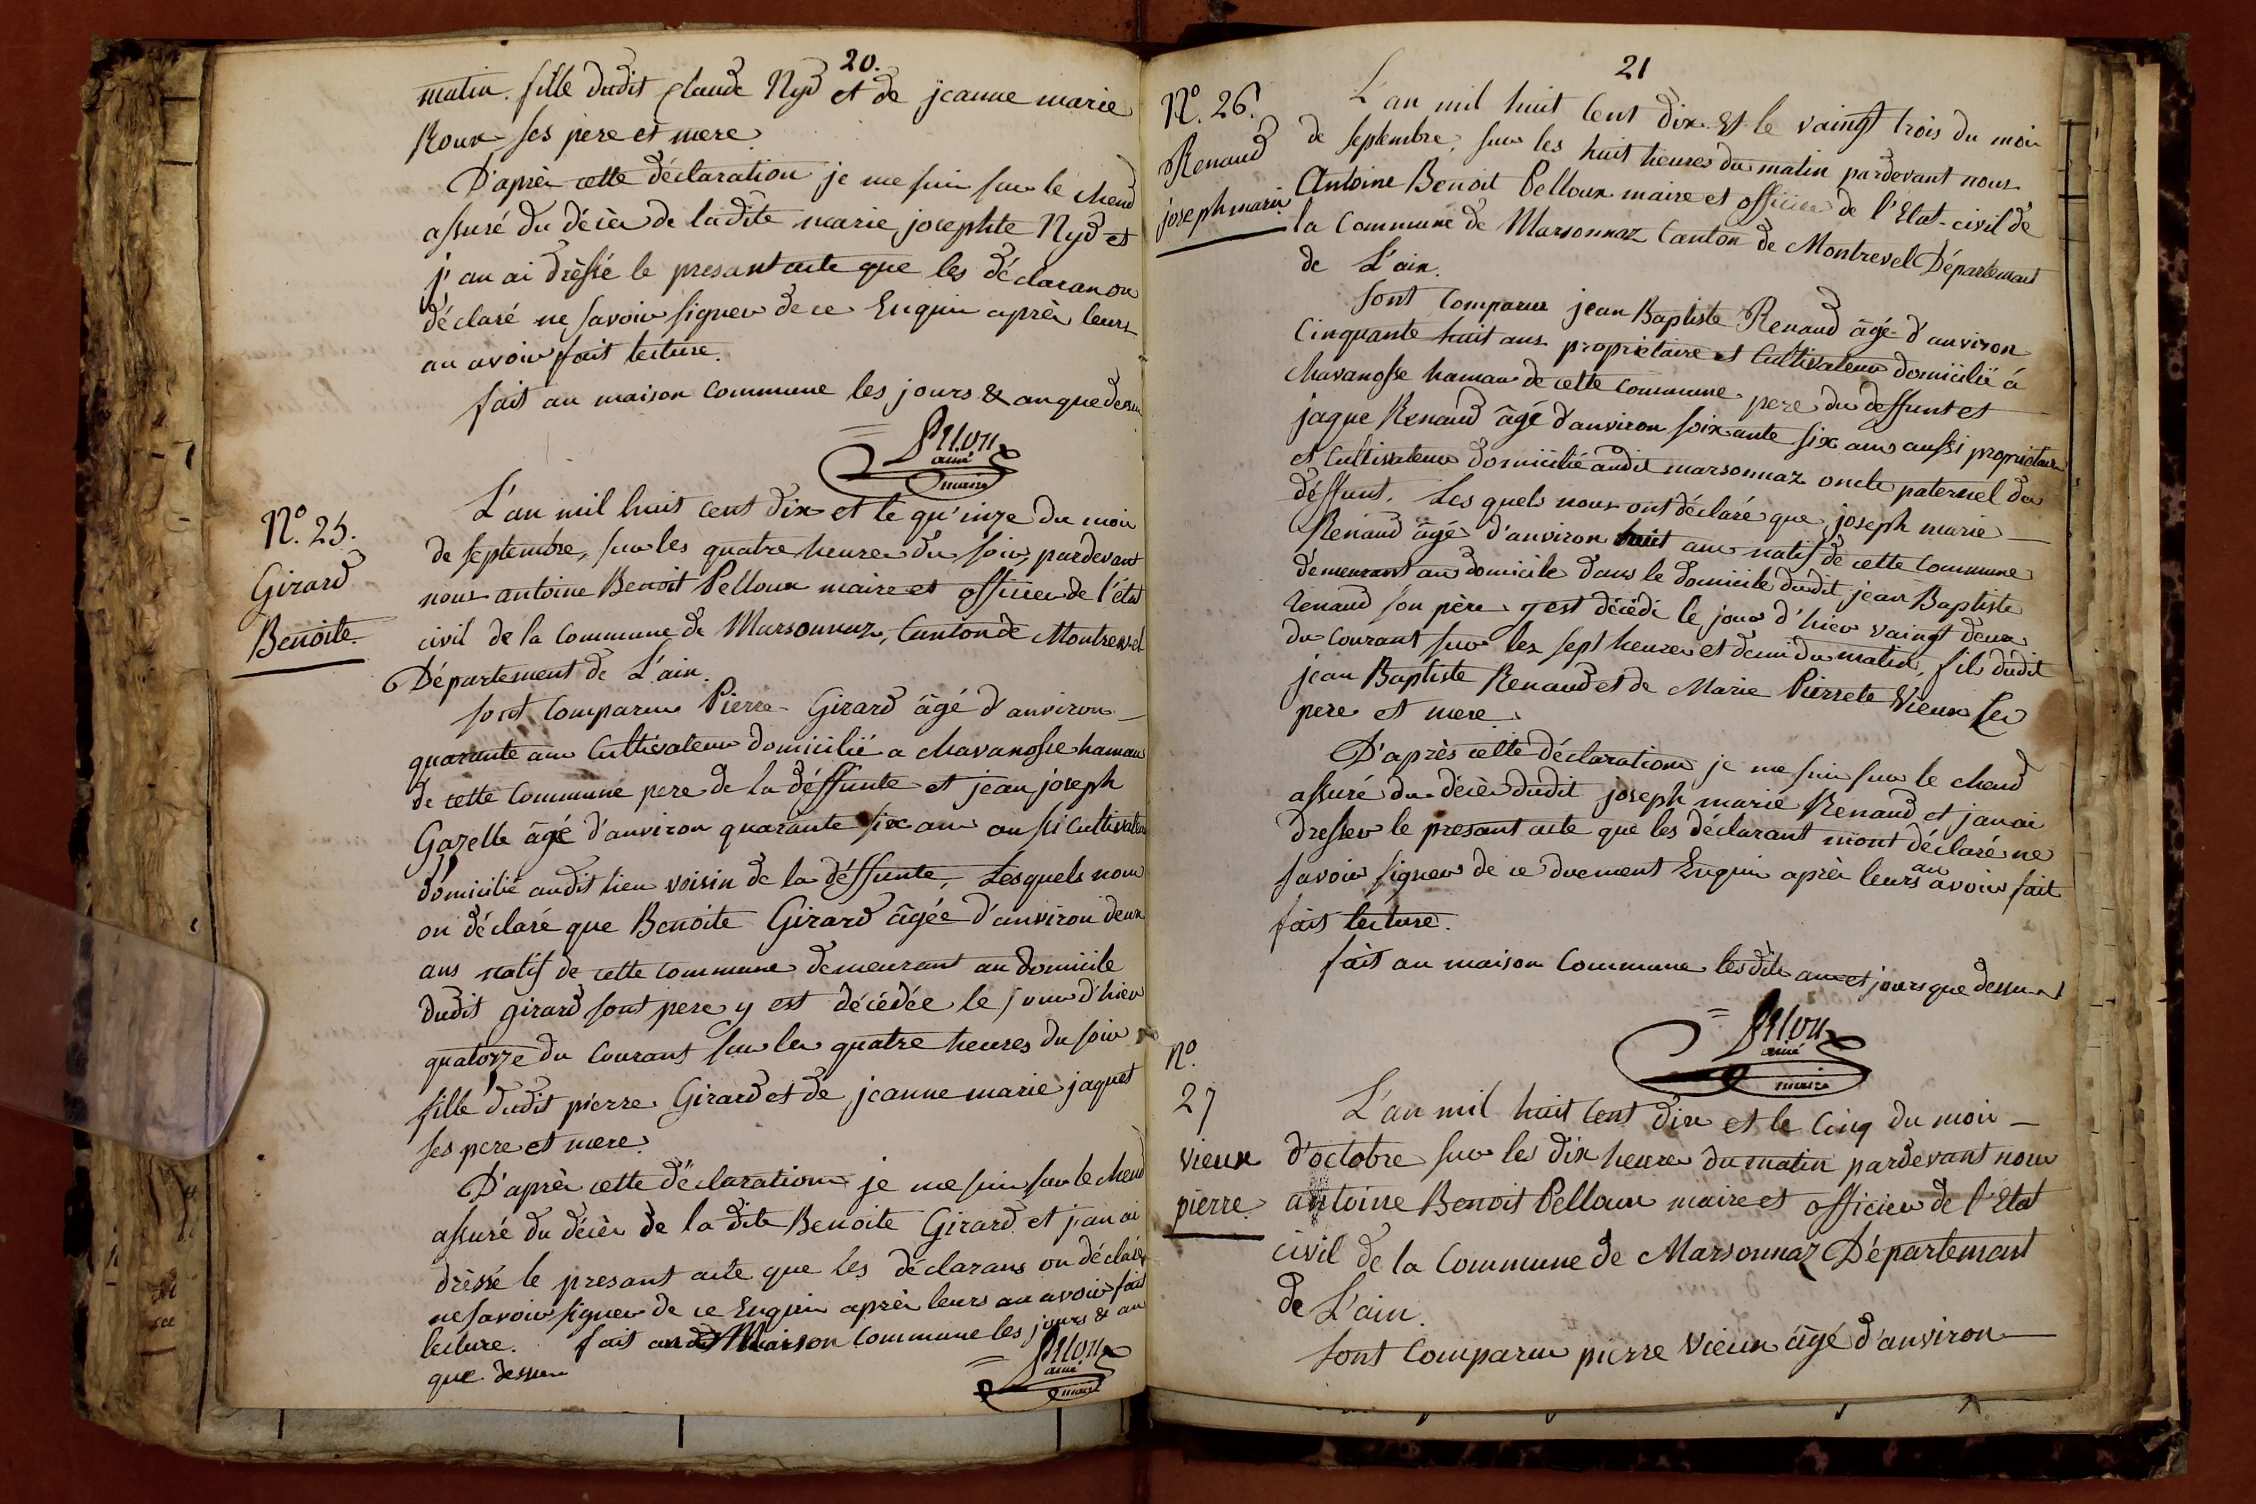 20.
matin. fille dudit Claude Nyd et de jeanne marie
Roux ses pere et mere.
D'après cette déclaration je me suis sur le cheud
assuré du décès de ladite marie josephte Nyd et
j'an ai drèssé le presant acte que les déclaran on
déclaré ne savoir signer de ce Enquin après leurs
an avoir fait lecture.
fait an maison commune les jours & an que dessu
Pellou
ainé
maire
Nº. 25.
Girard
Benoite.
L'an mil huit cent dix et le qu'inze du mois
de septembre, sur les quatre heures du soir, pardevant
nous antoine Benoit Pelloux maire et officier de l'état
civil de la Commune de Marsonnaz, Canton de Montrevel
Département de L'ain.
sont Comparus Pierre Girard âgé d'anviron
quarante ans Cultivateur domicilié a Chavanosse hamau
de cette Commune pere de la déffunte et jean joseph
Gazelle âgé d'anviron quarante six ans aussi Cultivateur
domicilié audit lieu voisin de la déffunte, Lesquels nous
on déclaré que Benoite Girard âgée d'anviron deux
ans natif de cette commune demeurant au domicile
dudit girard sont pere y est décédée le jour d'hier
quatorze du Courant sur les quatre heures du soir
fille dudit pierre Girard et de jeanne marie jaquet
ses pere et mere.
D'après cette déclaration je me suis sur le cheud
assuré du décès de la dite Benoite Girard et j'an ai
drèssé le presant acte que les déclarans on déclaré
ne savoir signer de ce Enquin après leurs an avoir fait
lecture. fait an Maison Commune les jours & an
que dessu
Pellou
ainé
maire
21
Nº. 26.
Renaud
joseph marie
L'an mil huit Cent dix et le vaingt trois du mois
de septembre, sur les huit heures du matin pardevant nous
Antoine Benoit Pelloux maire et officier de l'Etat-civil de
la Commune de Marsonnaz Canton de Montrevel Département
de L'ain.
sont Comparus jean Baptiste Renaud âgé d'anviron
Cinquante huit ans proprietaire et Cultivateur domicilié à
Chavanosse hamau de cette Commune pere du deffunt et
jaque Renaud âgé d'anviron soixante six ans aussi proprietaire
et Cultivateur domicilié audit marsonnaz oncle paternel du
déffunt. Les quels nous ont déclaré que joseph marie
Renaud âgé d'anviron huit ans natif de cette Commune
demeurant au domicile dans le domicile dudit jean Baptiste
Renaud son père y est décédé le jour d'hier vaingt deux
du Courant sur les sept heures et demi du matin, fils dudit
jean Baptiste Renaud et de Marie Pierrete Vieux ses
pere et mere.
D'après cette déclaration je me suis sur le cheud
assuré du décès dudit joseph marie Renaud et j'an ai
dresser le presant acte que les déclarant m'ont déclaré ne
savoir signer de ce duement Enquin après leurs an avoir fait
fait lecture.
fait an maison Commune les dits an et jours que dessu
Pellou
ainé
maire
nº.
27
vieux
pierre.
L'an mil huit Cent dix et le Cinq du mois
d'octobre sur les dix heures du matin pardevant nous
antoine Benoit Pelloux maire et officier de l'Etat
civil de la Commune de Marsonnaz Département
de L'ain.
sont Comparus pierre vieux âgé d'anviron